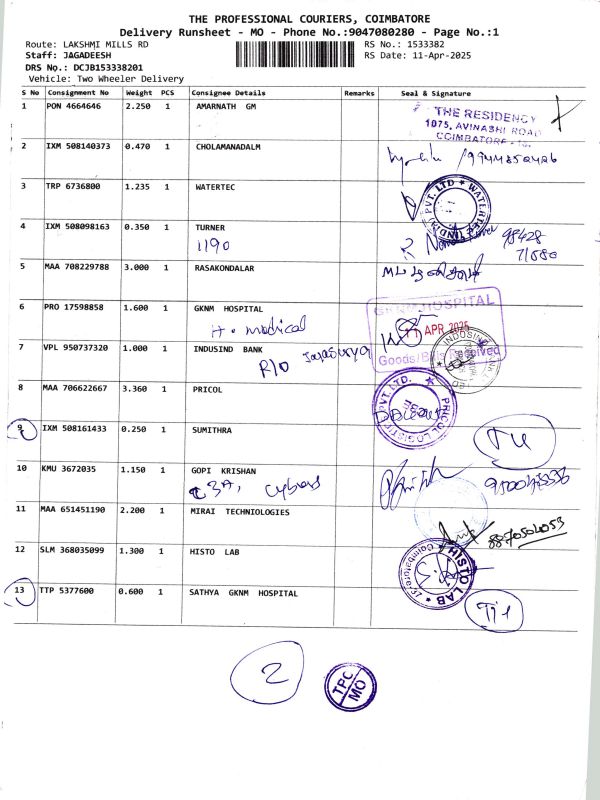 THE PROFESSIONAL COURIERS, COIMBATORE
Delivery Runsheet - MO - Phone No.:9047080280 - Page No.:1
Route: LAKSHMI MILLS RD
RS No.: 1533382
Staff: JAGADEESH
RS Date: 11-Apr-2025
DRS No.: DCJB153338201
Vehicle: Two Wheeler Delivery
S No Consignment No Weight PCS Consignee Details Remarks Seal & Signature
1 PON 4664646 2.250 1 AMARNATH GM
THE RESIDENCY
1075, AVINASHI ROAD
COIMBATORE
2 IXM 508140373 0.470 1 CHOLAMANADALM
3 TRP 6736800 1.235 1 WATERTEC
4 IXM 508098163 0.350 1 TURNER
1190
98428
71880
5 MAA 708229788 3.000 1 RASAKONDALAR
6 PRO 17598858 1.600 1 GKNM HOSPITAL
H. medical
GKNM HOSPITAL
11 APR 2025
Goods/Bills Received
7 VPL 950737320 1.000 1 INDUSIND BANK
R/O Jayasurya
8 MAA 706622667 3.360 1 PRICOL
PRICOL LOGISTIC PVT. LTD.
9 IXM 508161433 0.250 1 SUMITHRA
10 KMU 3672035 1.150 1 GOPI KRISHAN
3A,
11 MAA 651451190 2.200 1 MIRAI TECHNIOLOGIES
12 SLM 368035099 1.300 1 HISTO LAB
HISTO LAB
Coimbatore
13 TTP 5377600 0.600 1 SATHYA GKNM HOSPITAL
2
TPC
MO